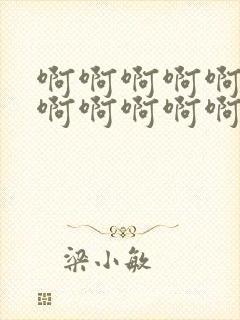 啊啊啊啊啊
啊啊啊啊啊
梁小敏